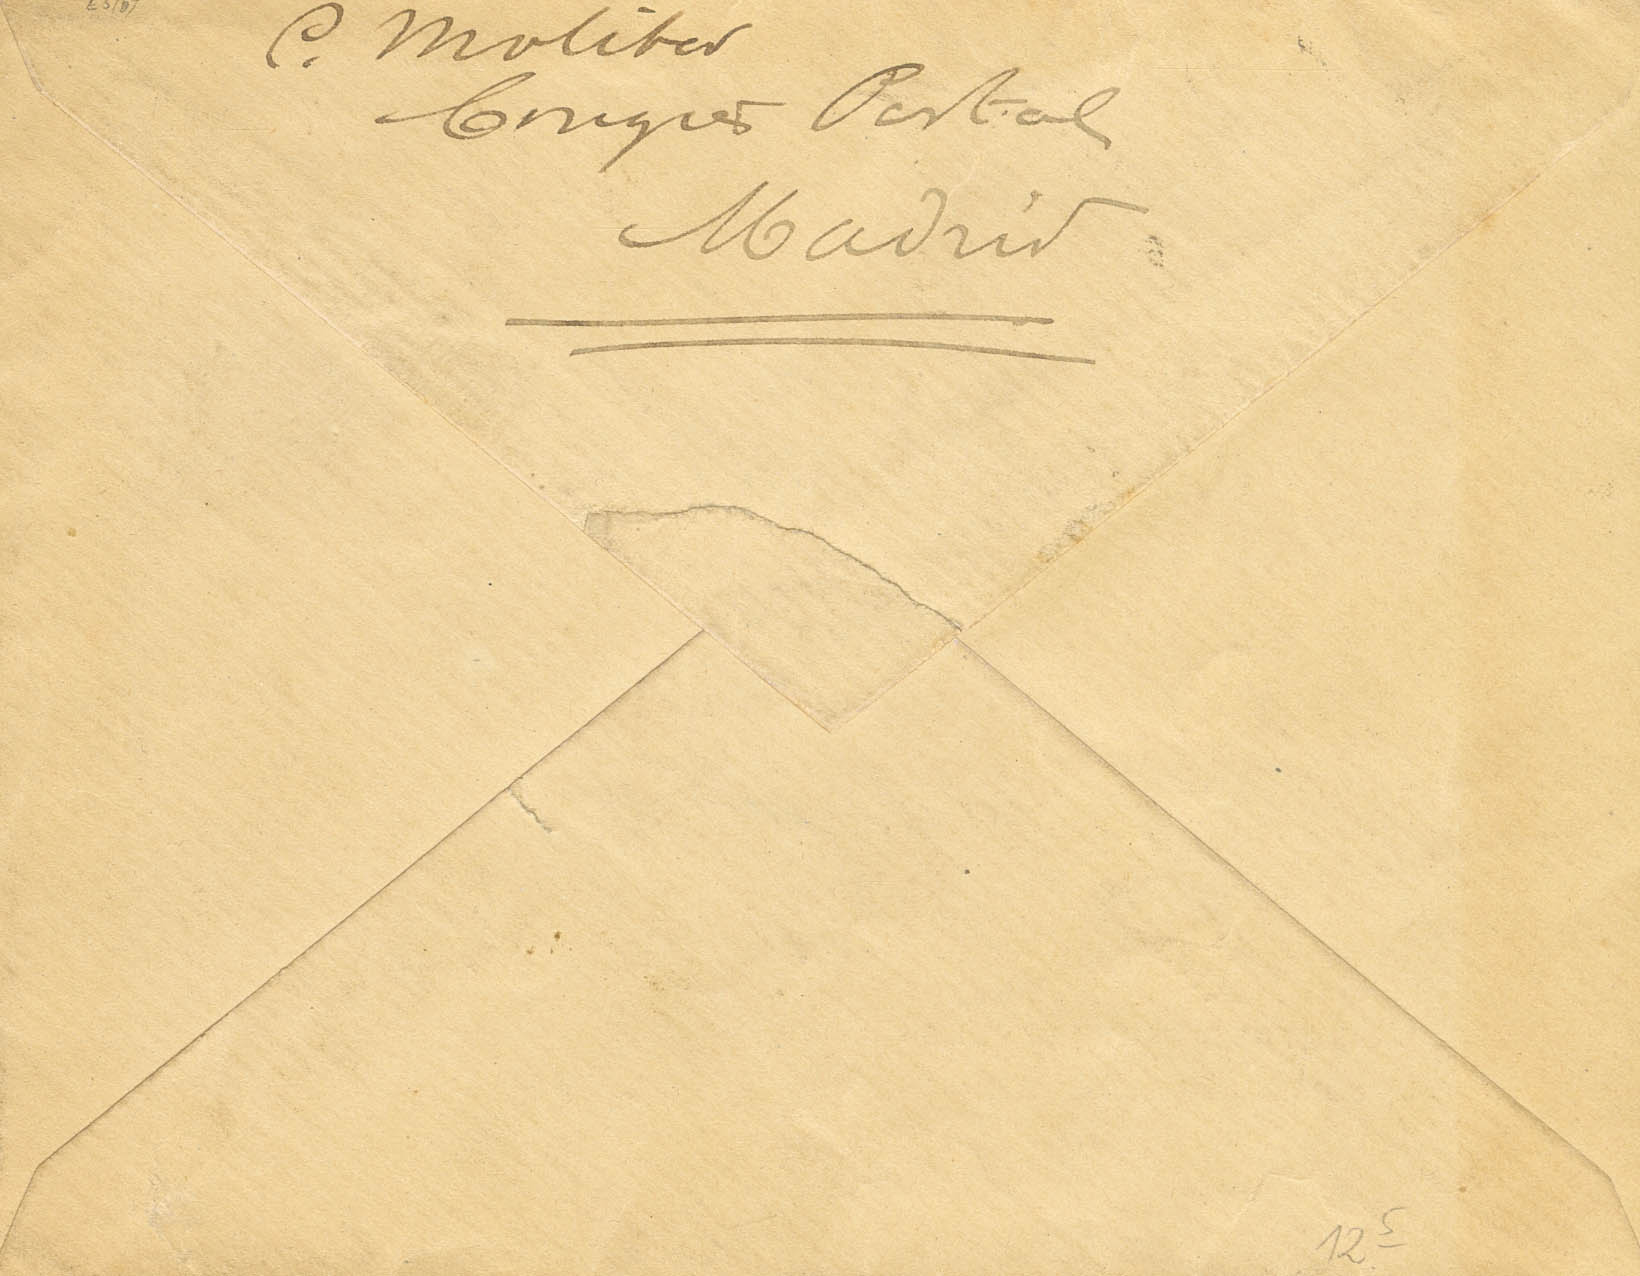 C. Molitor
Congrès Postal
Madrid
12 5